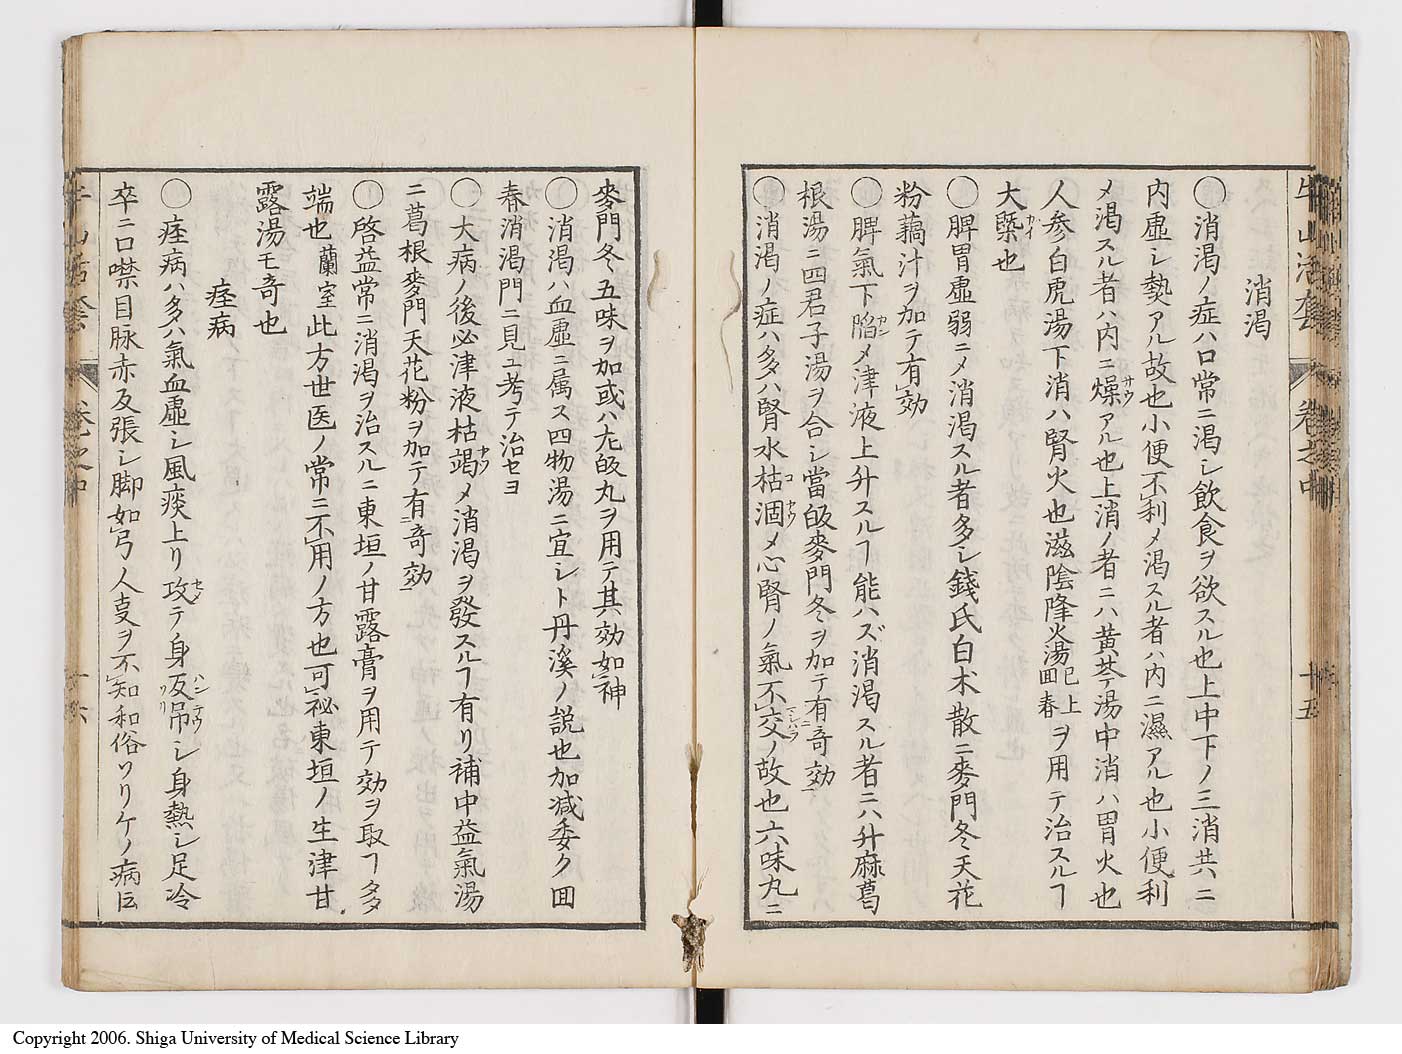 牛山活套 卷之中 十五
消渴
○消渴ノ症ハ口常ニ渴シ飲食ヲ欲スル也上中下ノ三消共ニ
内虛シ熱アル故也小便不利メ渴スル者ハ内ニ濕アル也小便利
メ渴スル者ハ内ニ燥サウアル也上消ノ者ニハ黄芩湯中消ハ胃火也
人參白虎湯下消ハ腎火也滋陰降火湯已上回春ヲ用テ治スルヿ
大槩ガイ也
○脾胃虛弱ニメ消渴スル者多シ錢氏白朮散ニ麥門冬天花
粉藕汁ヲ加テ有効
○脾氣下陷カンメ津液上升スルヿ能ハズ消渴スル者ニハ升麻葛
根湯ニ四君子湯ヲ合シ當皈麥門冬ヲ加テ有ニ奇効一
○消渴ノ症ハ多ハ腎水枯コ涸カウメ心腎ノ氣不交マジハラノ故也六味丸ニ
麥門冬五味ヲ加或ハ尢皈丸ヲ用テ其効如神
○消渴ハ血虛ニ属ス四物湯ニ宜シト丹溪ノ説也加減委ク回
春消渴門ニ見ユ考テ治セヨ
○大病ノ後必津液枯竭カツメ消渴ヲ發スルヿ有リ補中益氣湯
ニ葛根麥門天花粉ヲ加テ有ニ奇効一
○啓益常ニ消渴ヲ治スルニ東垣ノ甘露膏ヲ用テ効ヲ取ヿ多
端也蘭室此方世医ノ常ニ不用ノ方也可祕東垣ノ生津甘
露湯モ奇也
痓病
○痓病ハ多ハ氣血虛シ風痰上リ攻セメテ身反ハン弔テウシ身熱シ足冷
卒ニ口噤目脉赤反張シ脚如弓ノ人事ヲ不知和俗ソリケノ病ト云
牛山活套 卷之中 十六